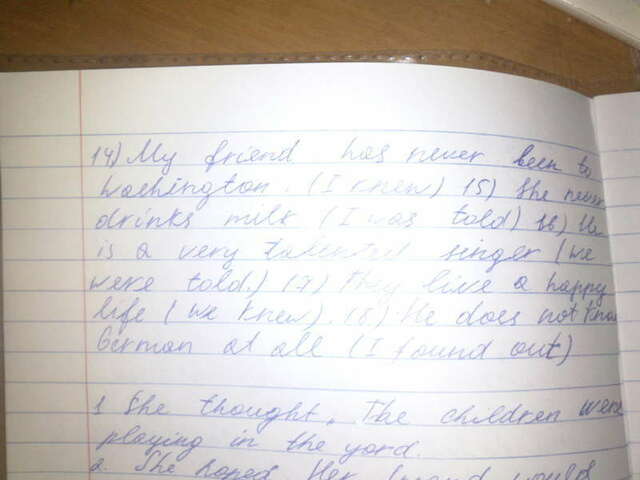 14) My friend has never been to
Washington. (I knew) 15) She never
drinks milk (I was told) 16) He
is a very talented singer (we
were told.) 17) They live a happy
life (we knew). 18.) He does not know
German at all (I found out)
1 She thought, The children were
playing in the yord.
2. She hoped Her friend would